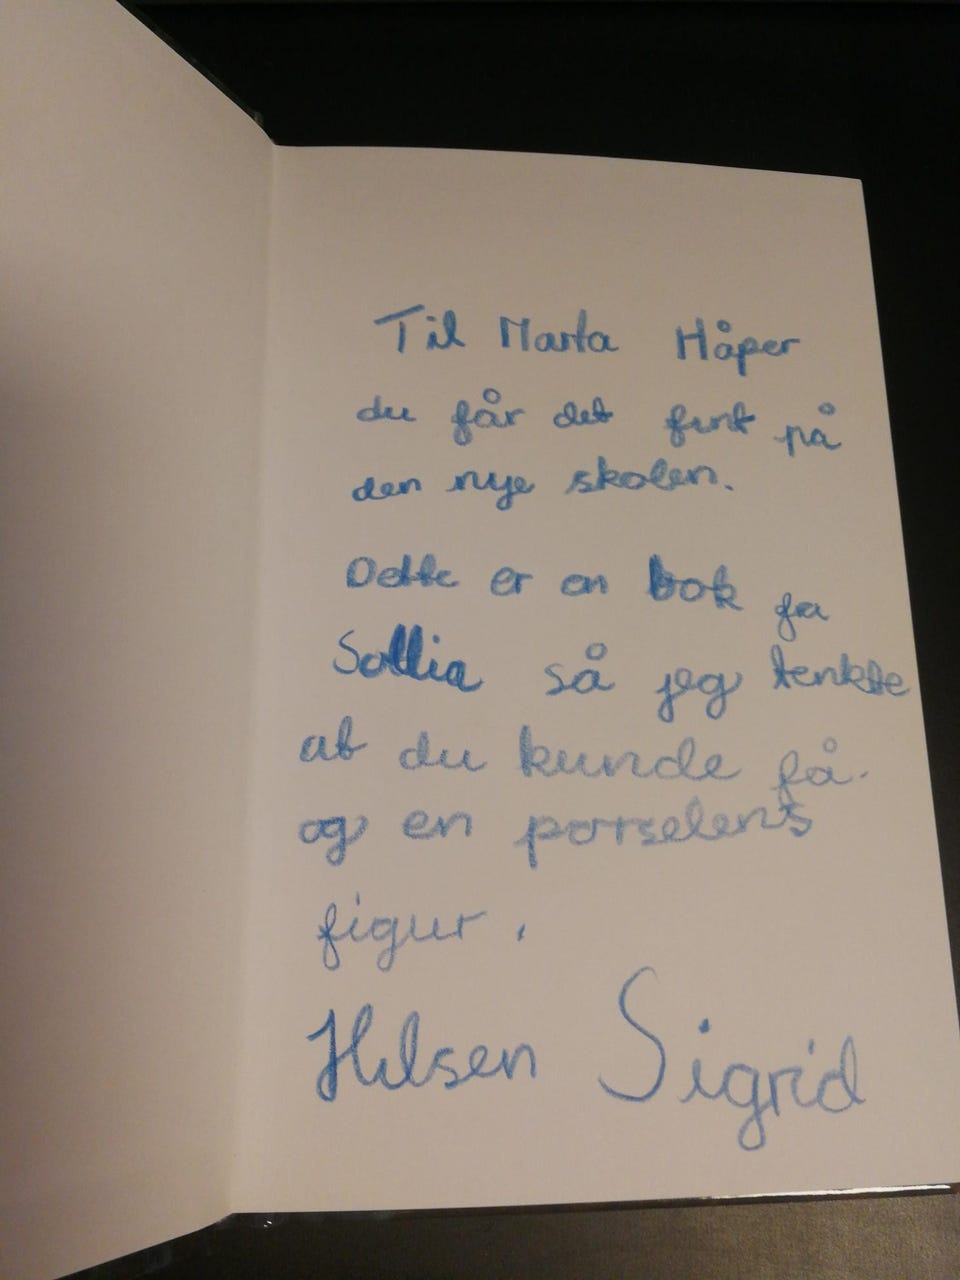 Til Marta Håper
du får det fint på
den nye skolen.
Dette er en bok fra
Sollia så jeg tenkte
at du kunde få.
og en porselens
figur.
Hilsen Sigrid